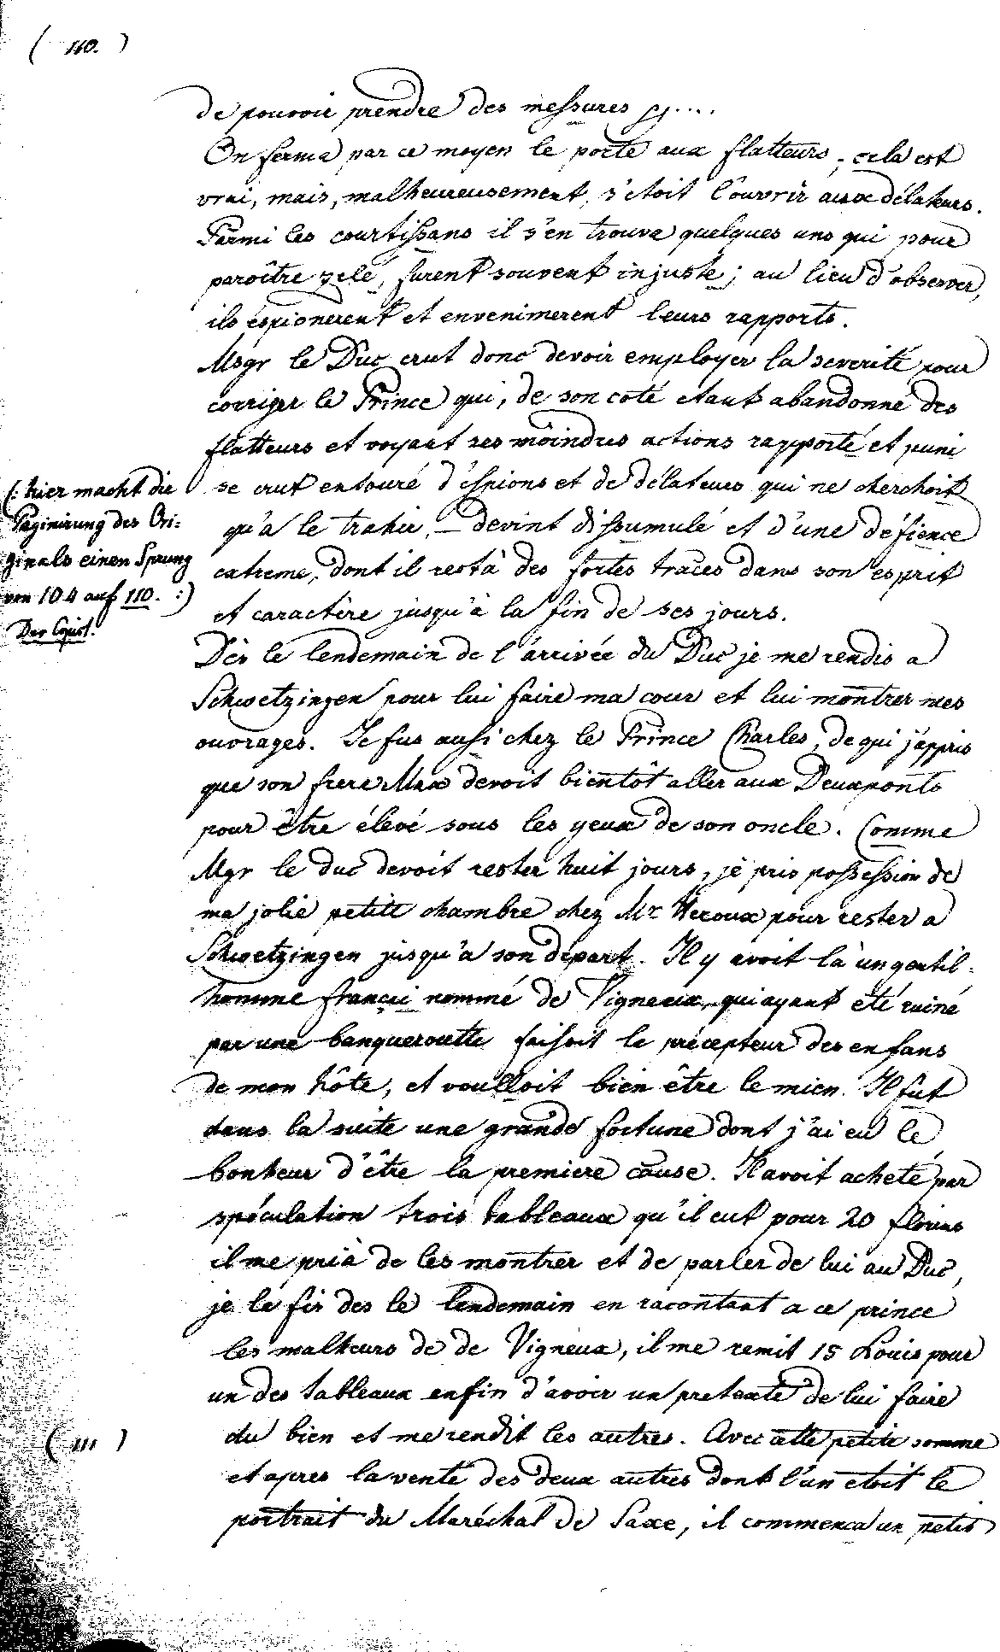 ( 110. )
de pouvoir prendre des messures
On ferma par ce moyen le porte aux flatteurs, cela est
vrai, mais, malheureusement, s'étoit l'ouvrir aux délateurs.
Parmi les courtissans il s'en trouva quelques uns qui pour
paroître zelé, furent souvent injuste; au lieu d'observer,
ils éspionerent et envenimerent leurs rapports.
Msgr le Duc crut donc devoir employer la severité pour
corriger le Prince qui, de son coté etant abandonné des
flatteurs et voyant ses moindres actions rapporté et puni
se crut entouré d'éspions et de délateurs qui ne cherchoit
qu'à le trahir, — devint dissumulé et d'une défience
extreme, dont il restà des fortes traces dans son esprit
et caractère jusqu'à la fin de ses jours.
(: hier macht die
Paginirung des Ori:
ginals einen Sprung
von 104 auf 110. :)
Der Copist.
Dès le lendemain de l'arrivée du Duc je me rendis a
Schwetzingen pour lui faire ma cour et lui montrer mes
ouvrages. Je fus aussi chez le Prince Charles, de qui j'appris
que son frere Max devoit bientôt aller aux Deuxponts
pour être élevé sous les yeux de son oncle. Comme
Mgr le duc devoit rester huit jours, je pris possession de
ma jolie petite chambre chez Mr Veroux pour rester a
Schwetzingen jusqu'a son départ. Il y avoit là un gentil-
homme françai nommé de Vigneux, qui ayant eté ruiné
par une banqueroutte faisoit le précepteur des enfans
de mon hôte, et voulloit bien être le mien. Il fut
dans la suite une grande fortune dont j'ai eu le
bonheur d'être la premiere cause. Il avoit acheté par
spéculation trois tableaux qu'il eut pour 20 florins
il me prià de les montrer et de parler de lui au Duc,
je le fis des le lendemain en racontant a ce prince
les malheurs de de Vigneux, il me remit 15 Louis pour
un des tableaux enfin d'avoir un pretexte de lui faire
( 111 )
du bien et me rendit les autres. Avec cette petite somme
et apres la vente des deux autres dont l'un etoit le
portrait du Maréchal de Saxe, il commenca un petit